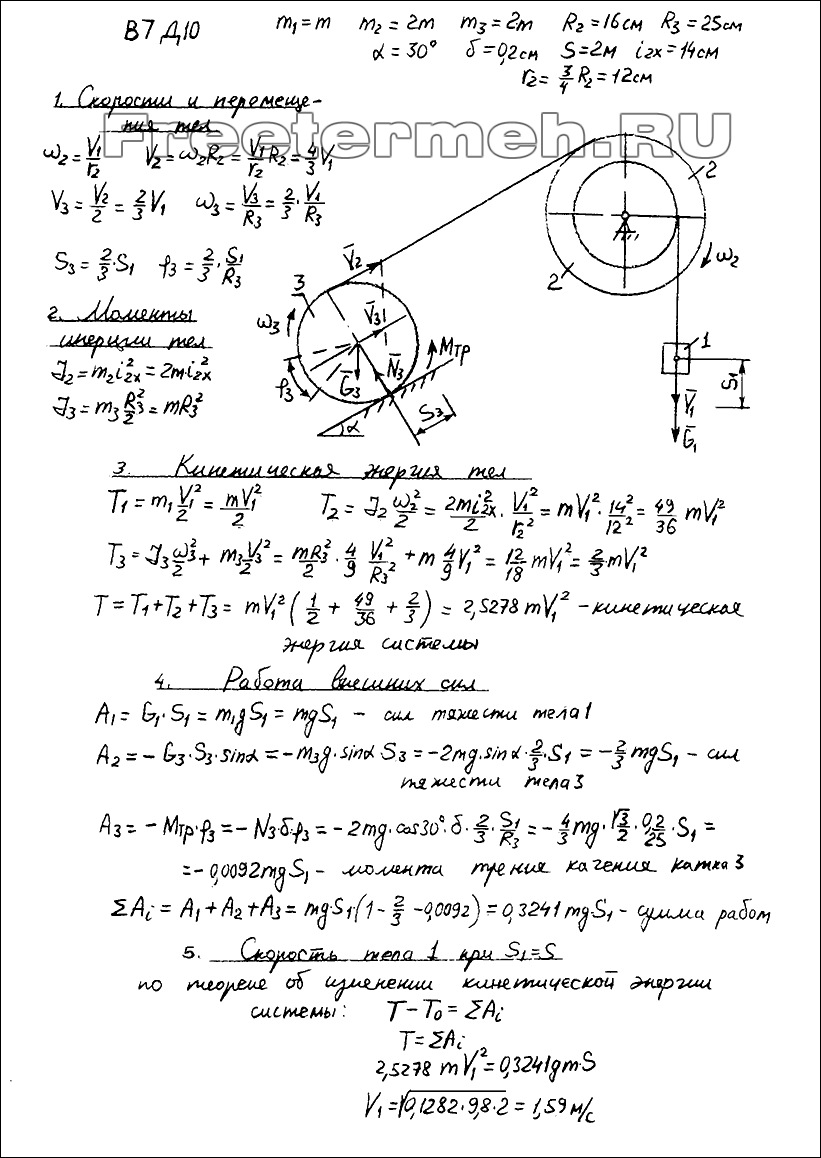 В7 Д10
m₁=m m₂=2m m₃=2m R₂=16см R₃=25см
α=30° δ=0,2см S=2м i₂ₓ=14см
r₂=3/4 R₂=12см
1. Скорости и перемеще-
ния тел
Freetermeh.RU
ω₂=V₁/r₂ V₂=ω₂R₂=V₁/r₂ R₂=4/3 V₁
V₃=V₂/2=2/3 V₁ ω₃=V₃/R₃=2/3·V₁/R₃
S₃=2/3·S₁ φ₃=2/3·S₁/R₃
2. Моменты
инерции тел
J₂=m₂i₂ₓ²=2mi₂ₓ²
J₃=m₃R₃²/2=mR₃²
2
2
ω₂
V̄₂
3
ω₃
V̄₃
Mтр
N̄₃
Ḡ₃
φ₃
S₃
α
1
S₁
V̄₁
Ḡ₁
3. Кинетическая энергия тел
T₁=m₁V₁²/2=mV₁²/2 T₂=J₂ω₂²/2=2mi₂ₓ²/2·V₁²/r₂²=mV₁²·14²/12²=49/36 mV₁²
T₃=J₃ω₃²/2+m₃V₃²/2=mR₃²/2·4/9 V₁²/R₃²+m 4/9 V₁²=12/18 mV₁²=2/3·mV₁²
T=T₁+T₂+T₃=mV₁²(1/2+49/36+2/3)=2,5278mV₁² - кинетическая
энергия системы
4. Работа внешних сил
A₁=G₁·S₁=m₁gS₁=mgS₁ - сил тяжести тела 1
A₂=-G₃·S₃·sinα=-m₃g·sinα S₃=-2mg·sinα·2/3·S₁=-2/3 mgS₁ - сил
тяжести тела 3
A₃=-Mтр·φ₃=-N₃·δ·φ₃=-2mg·cos30°·δ·2/3·S₁/R₃=-4/3 mg·√3/2·0,2/25·S₁=
=-0,0092mgS₁ - момента трения качения катка 3
ΣAᵢ=A₁+A₂+A₃=mgS₁·(1-2/3-0,0092)=0,3241mgS₁ - сумма работ
5. Скорость тела 1 при S₁=S
по теореме об изменении кинетической энергии
системы: T-T₀=ΣAᵢ
T=ΣAᵢ
2,5278mV₁²=0,3241gm·S
V₁=√0,1282·9,8·2=1,59м/с